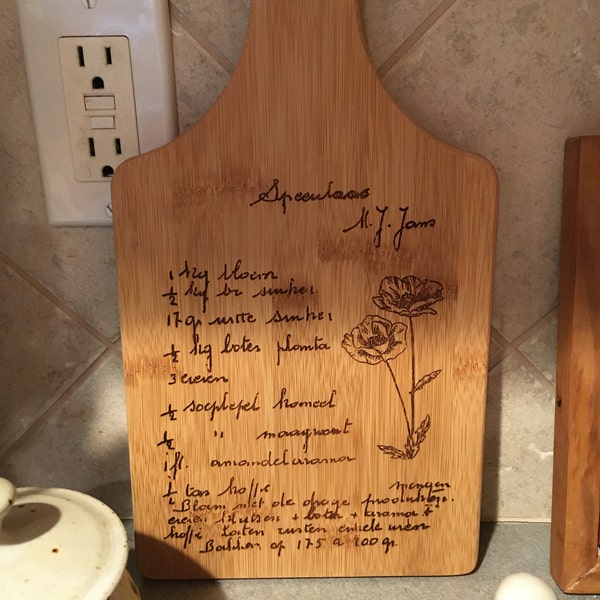 Speculaas
M. J. Jans
1 kg bloem
½ kg br suiker
17 gr witte suiker
½ kg boter planta
3 eieren
½ soeplepel kaneel
½ "
1 fl. amandelaroma
1 tas koffie mengen
Bloem met de droge produkten.
eieren klutsen + boter + aroma +
koffie laten rusten enkele uren
Bakken op 175 a 200 gr.